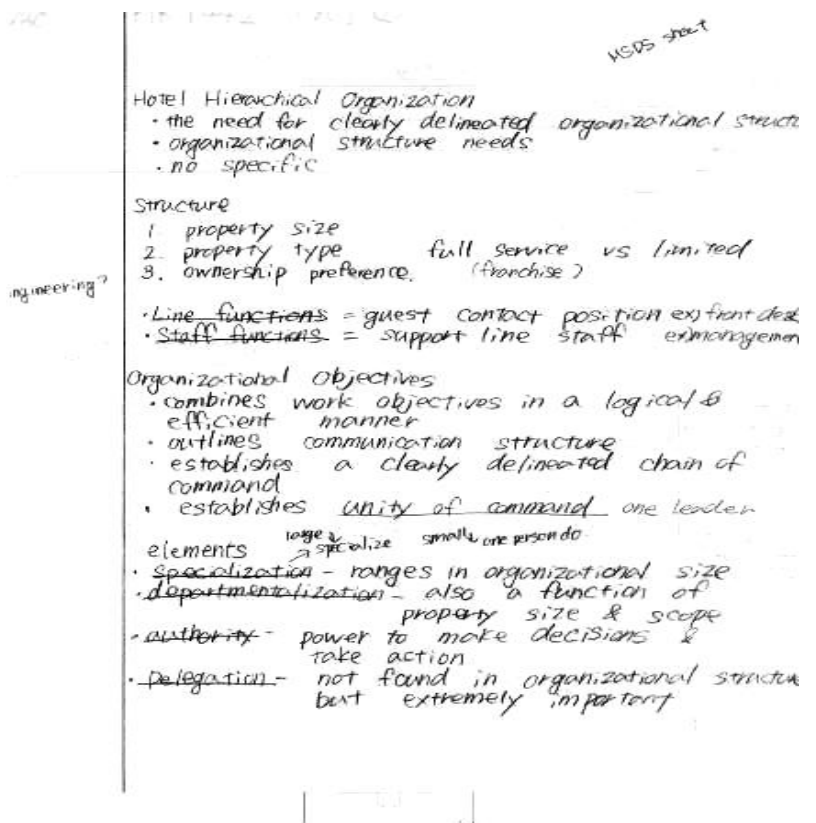 MSDS sheet
Hotel Hierarchical Organization
· the need for clearly delineated organizational structu
· organizational structure needs
· no specific
Structure
1 property size
2. property type full service vs limited
3. ownership preference. (franchise)
ngineering?
· Line functions = guest contact position ex) front desk
· Staff functions = support line staff ex) managemen
Organizational Objectives
· combines work objectives in a logical &
efficient manner
· outlines communication structure
· establishes a clearly delineated chain of
command
· establishes unity of command one leader
large ↓ small ↓ one person do.
elements ↗ specialize
· Specialization - ranges in organizational size
· departmentalization - also a function of
property size & scope
· authority - power to make decisions &
take action
· Delegation - not found in organizational structure
but extremely important